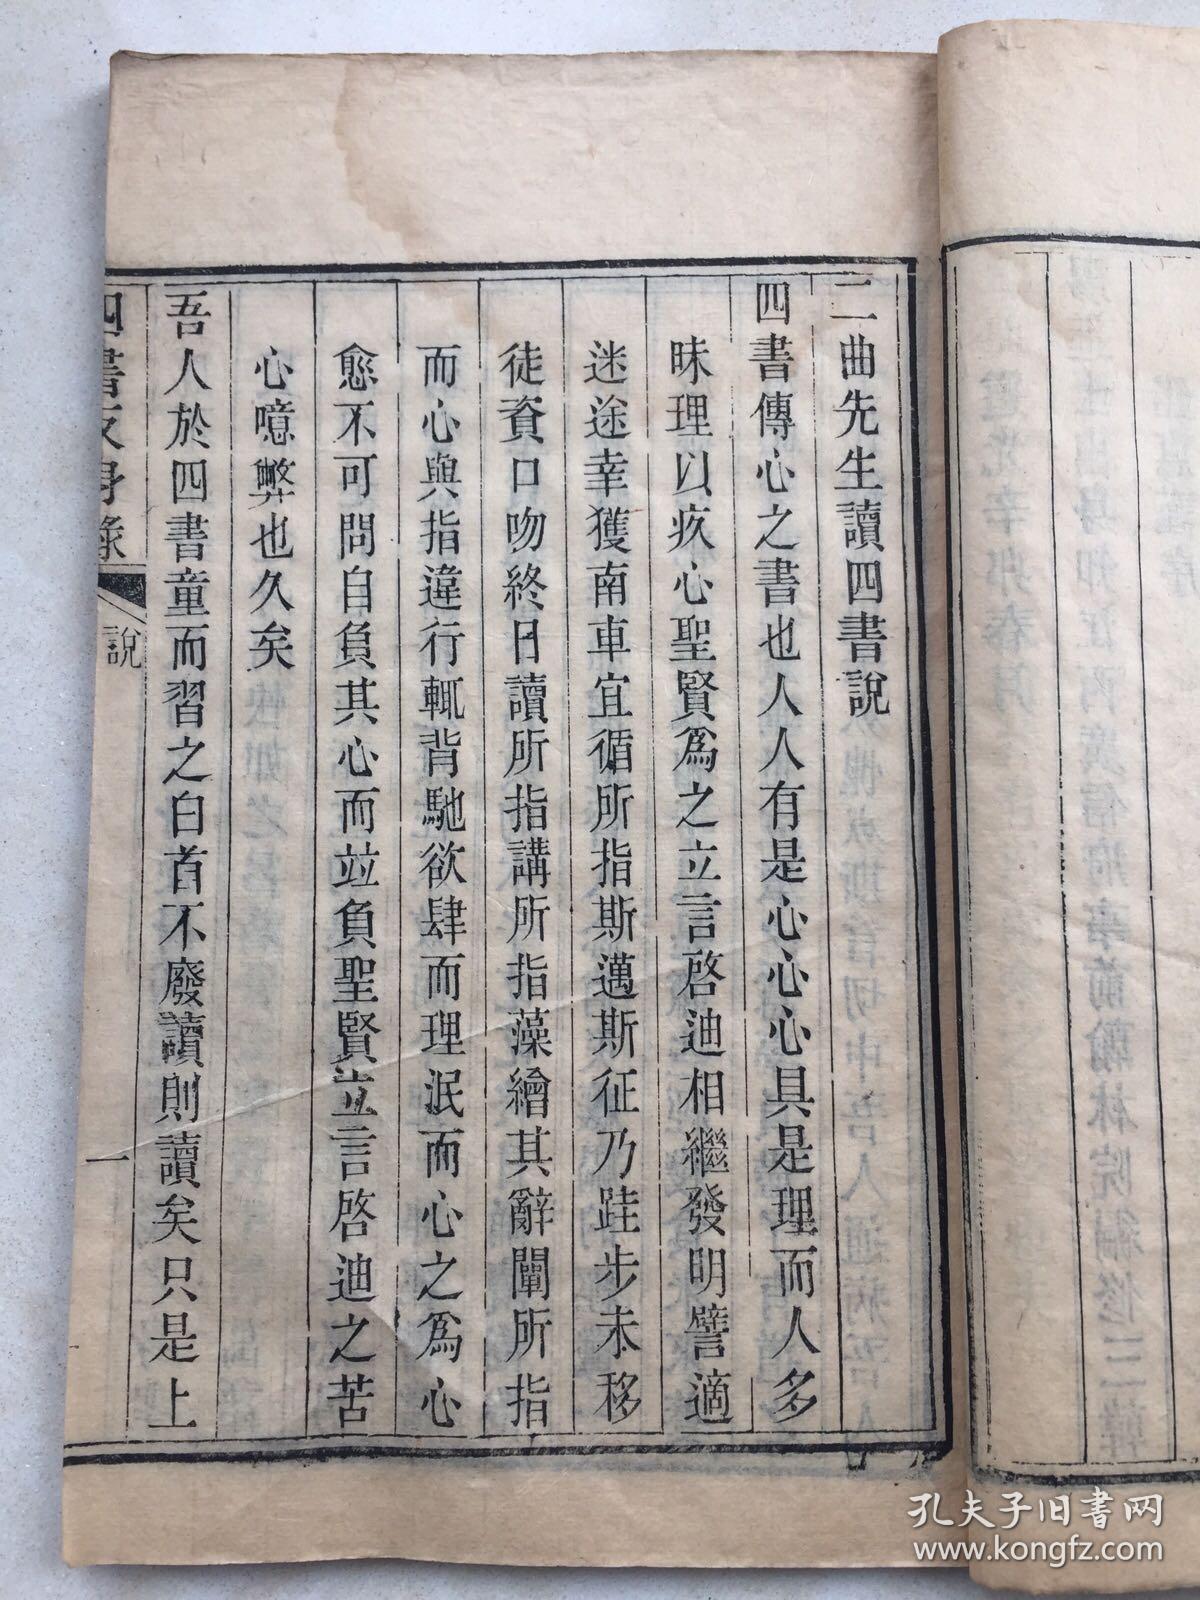 二曲先生讀四書說
四書傳心之書也人人有是心心心具是理而人多
昧理以疚心聖賢為之立言啓迪相繼發明譬適
迷途幸獲南車宜循所指斯邁斯征乃跬步未移
徒資口吻終日讀所指講所指藻繪其辭闡所指
而心與指違行輒背馳欲肆而理泯而心之為心
愈不可問自負其心而竝負聖賢立言啓迪之苦
心噫弊也久矣
吾人於四書童而習之白首不廢讀則讀矣只是上
四書反身錄
說
一
孔夫子旧书网
www.kongfz.com